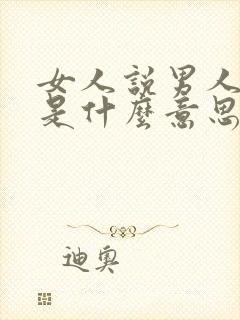 女人說男人
是什麼意思
迪奧